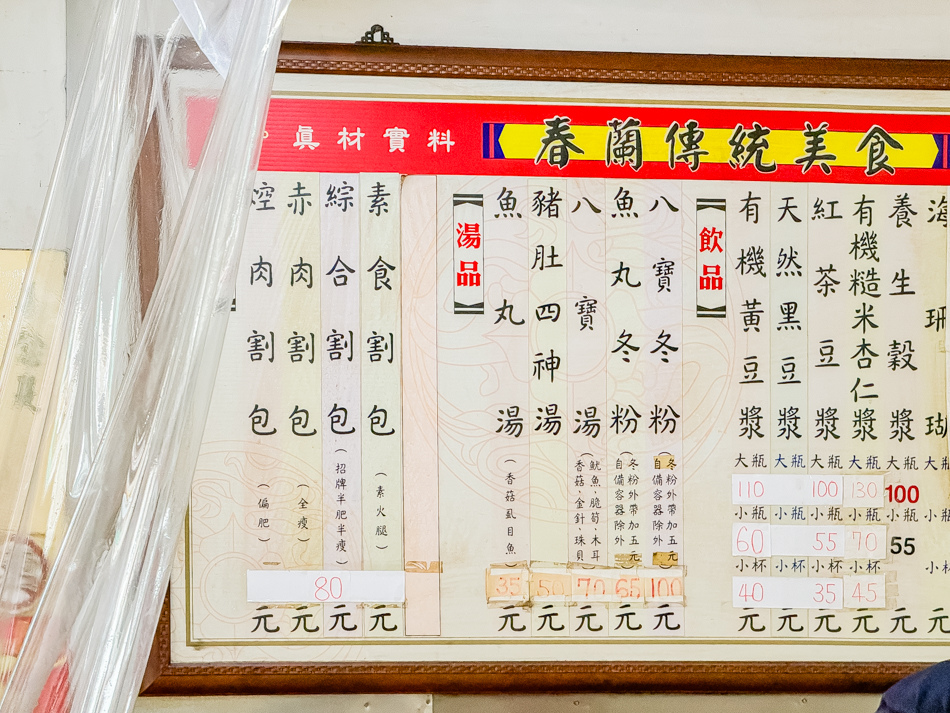 真材實料
春蘭傳統美食
焢肉割包（偏肥）
赤肉割包（全瘦）
綜合割包（招牌半肥半瘦）
素食割包（素火腿）
80
元 元 元 元
【湯品】
魚丸湯（香菇虱目魚）35元
豬肚四神湯 50元
八寶湯（魷魚、脆筍、木耳
香菇、金針、珠貝）70元
魚丸冬粉（冬粉外帶加五元
自備容器除外）65元
八寶冬粉（冬粉外帶加五元
自備容器除外）100元
【飲品】
有機黃豆漿 大瓶 110 小瓶 60 小杯 40 元
天然黑豆漿 大瓶 小瓶 小杯 元
紅茶豆漿 大瓶 100 小瓶 55 小杯 35 元
有機糙米杏仁漿 大瓶 130 小瓶 70 小杯 45 元
養生穀漿 大瓶 100 小瓶 55 元
海珊瑚 大瓶 小瓶 小杯 元